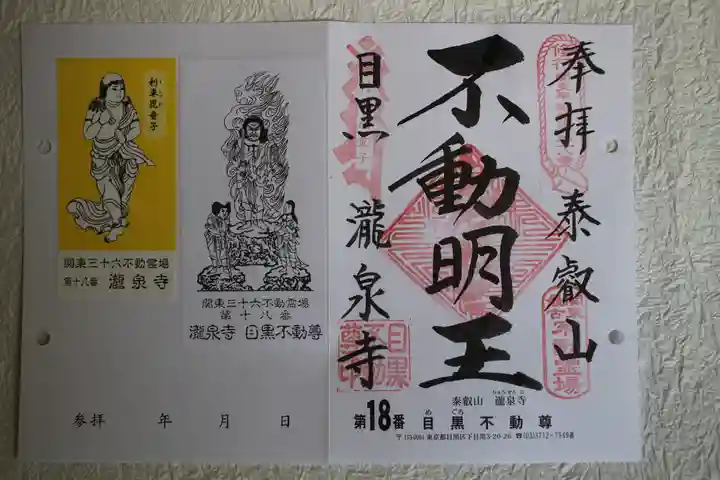 利車毘童子
関東三十六不動霊場
第十八番 瀧泉寺
関東三十六不動霊場
第十八番
瀧泉寺 目黒不動尊
参拝 年 月 日
奉拝 泰叡山
不動明王
目黒 瀧泉寺
目黒
不動
尊印
泰叡山 瀧泉寺
め ぐろ
第18番 目黒不動尊
東京都目黒区下目黒3-20-26 ☎(03)3712-7549番